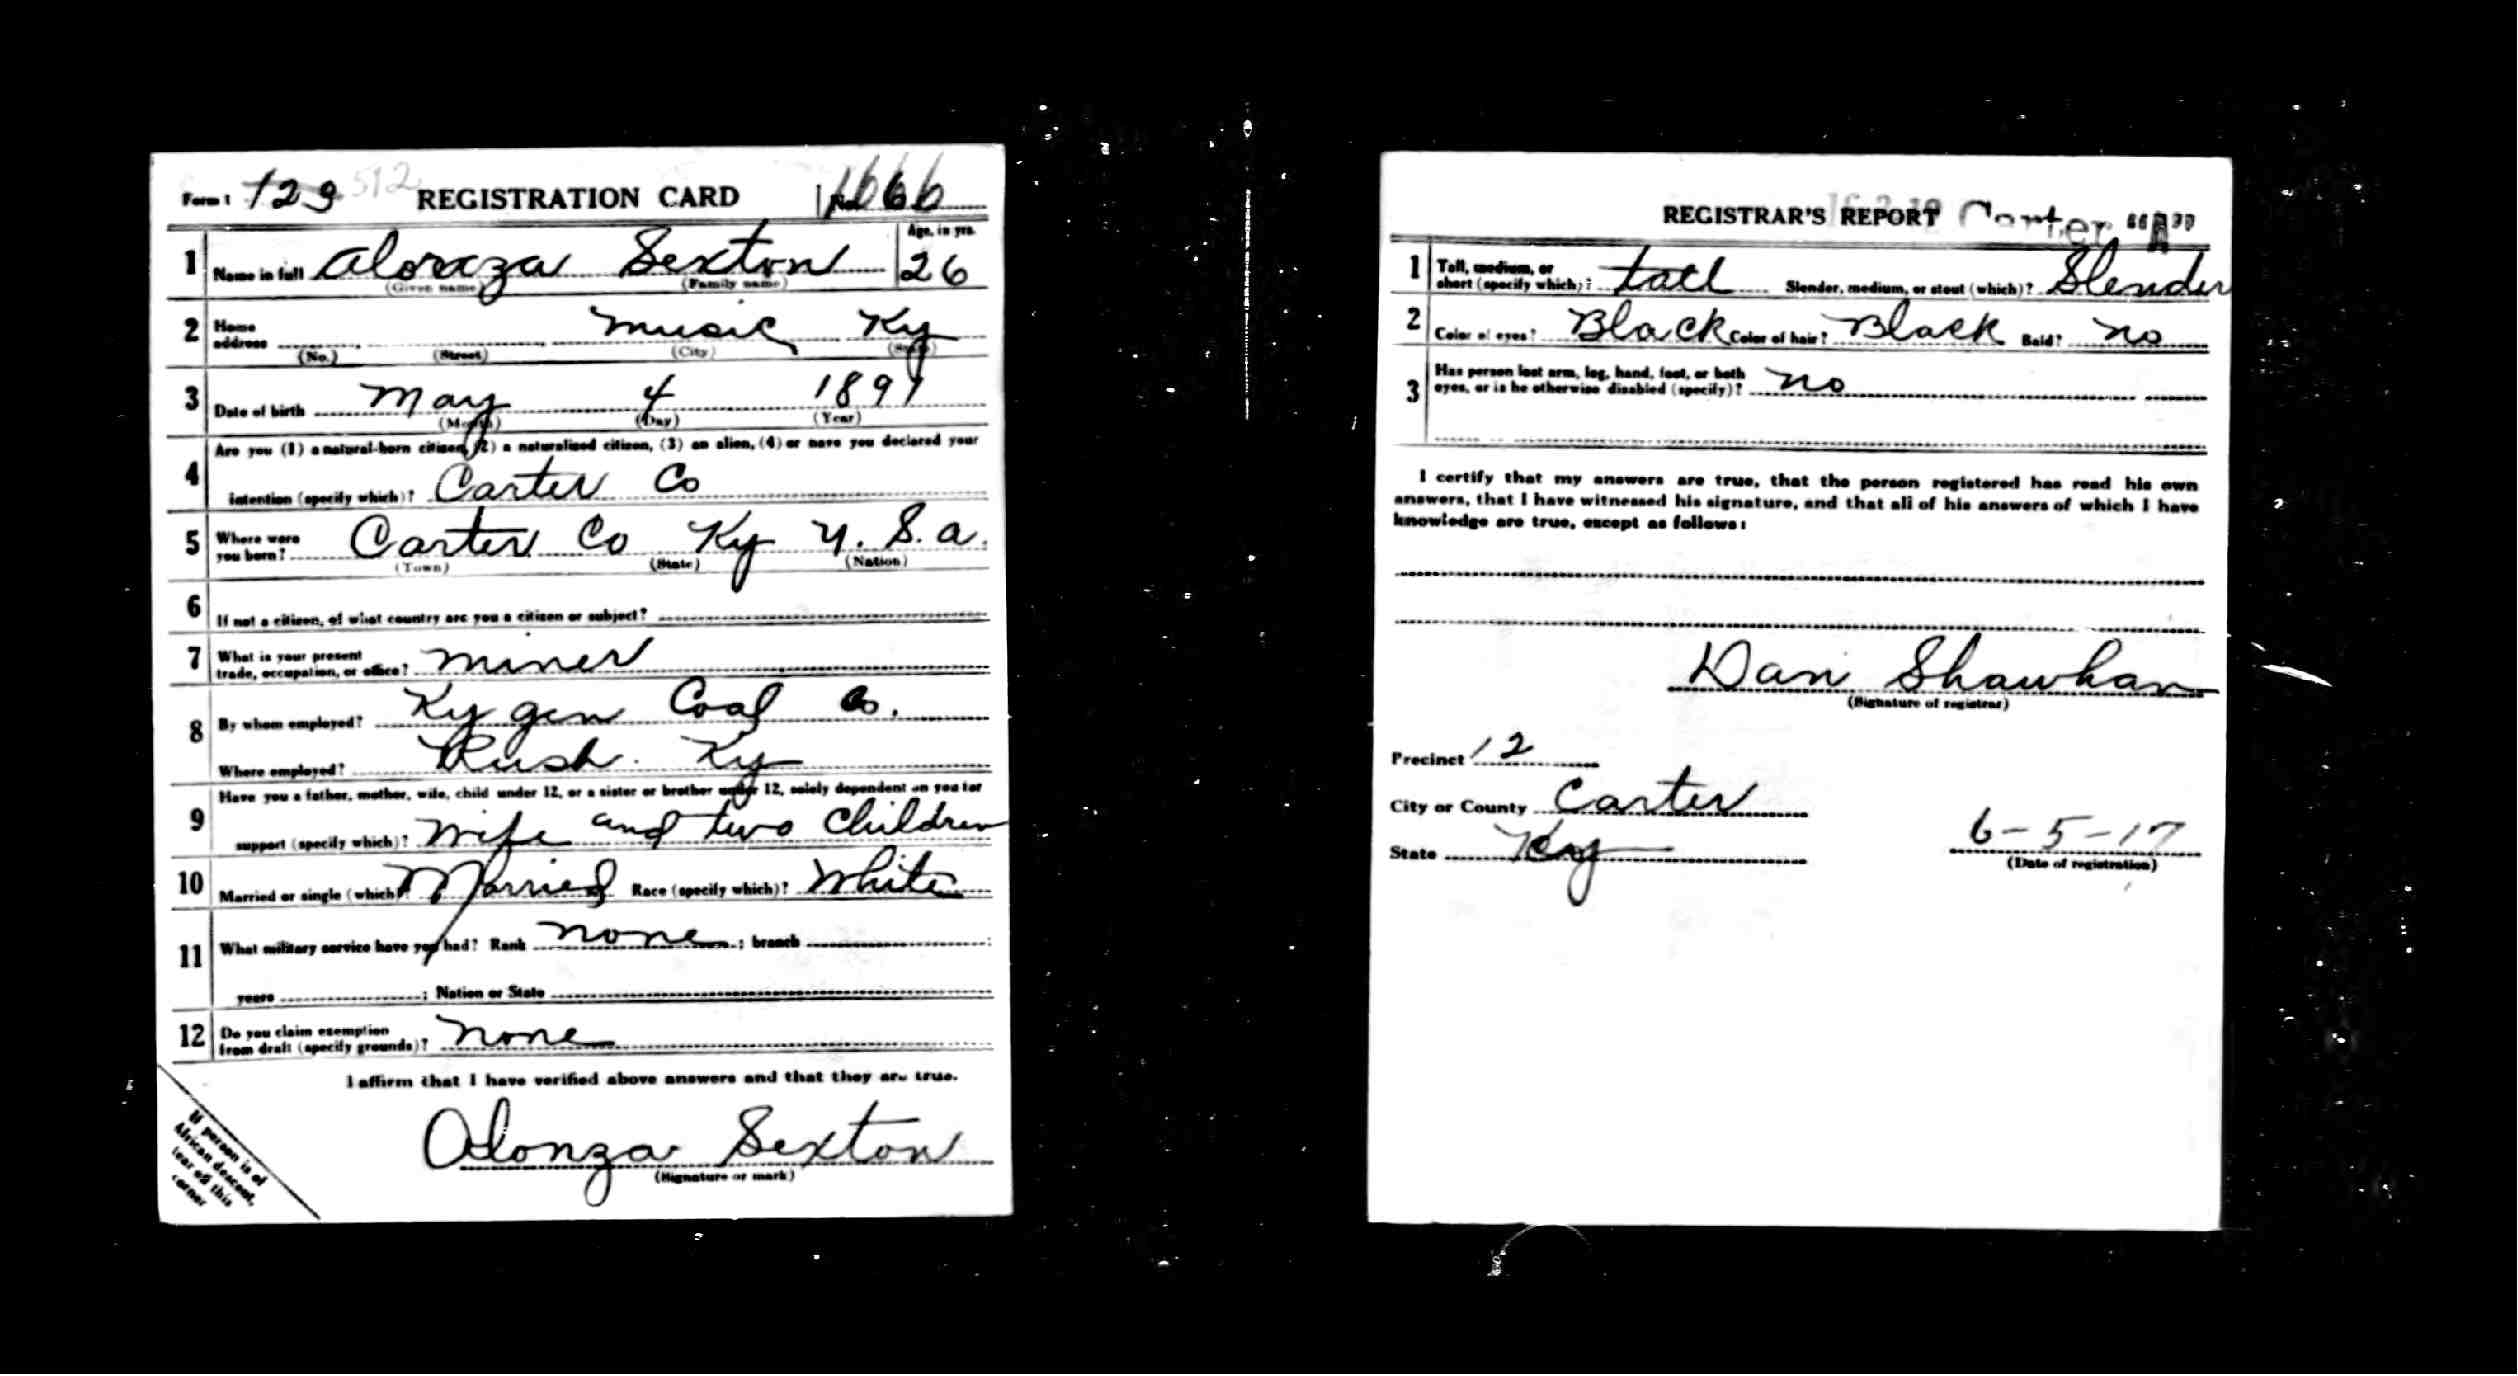 Form 1 129 512 REGISTRATION CARD No. 166
1 Name in full Alonza Sexton Age, in yrs. 26
(Given name) (Family name)
2 Home address Music Ky
(No.) (Street) (City) (State)
3 Date of birth May 4 1891
(Month) (Day) (Year)
4 Are you (1) a natural-born citizen, (2) a naturalized citizen, (3) an alien, (4) or have you declared your
intention (specify which)? Carter Co
5 Where were you born? Carter Co Ky U.S.a.
(Town) (State) (Nation)
6 If not a citizen, of what country are you a citizen or subject?
7 What is your present
trade, occupation, or office? miner
8 By whom employed? Ky gen Coal Co.
Where employed? Rush. Ky
9 Have you a father, mother, wife, child under 12, or a sister or brother under 12, solely dependent on you for
support (specify which)? Wife and two Children
10 Married or single (which)? Married Race (specify which)? White
11 What military service have you had? Rank none ; branch
years ; Nation or State
12 Do you claim exemption
from draft (specify grounds)? none
I affirm that I have verified above answers and that they are true.
Alonza Sexton
(Signature or mark)
If person is of
African descent,
tear off this
corner
REGISTRAR'S REPORT Carter "A"
1 Tall, medium, or
short (specify which)? tall Slender, medium, or stout (which)? Slender
2 Color of eyes? Black Color of hair? Black Bald? no
3 Has person lost arm, leg, hand, foot, or both
eyes, or is he otherwise disabled (specify)? no
I certify that my answers are true, that the person registered has read his own
answers, that I have witnessed his signature, and that all of his answers of which I have
knowledge are true, except as follows:
Dan Shawhan
(Signature of registrar)
Precinct 12
City or County Carter
State Ky 6-5-17
(Date of registration)